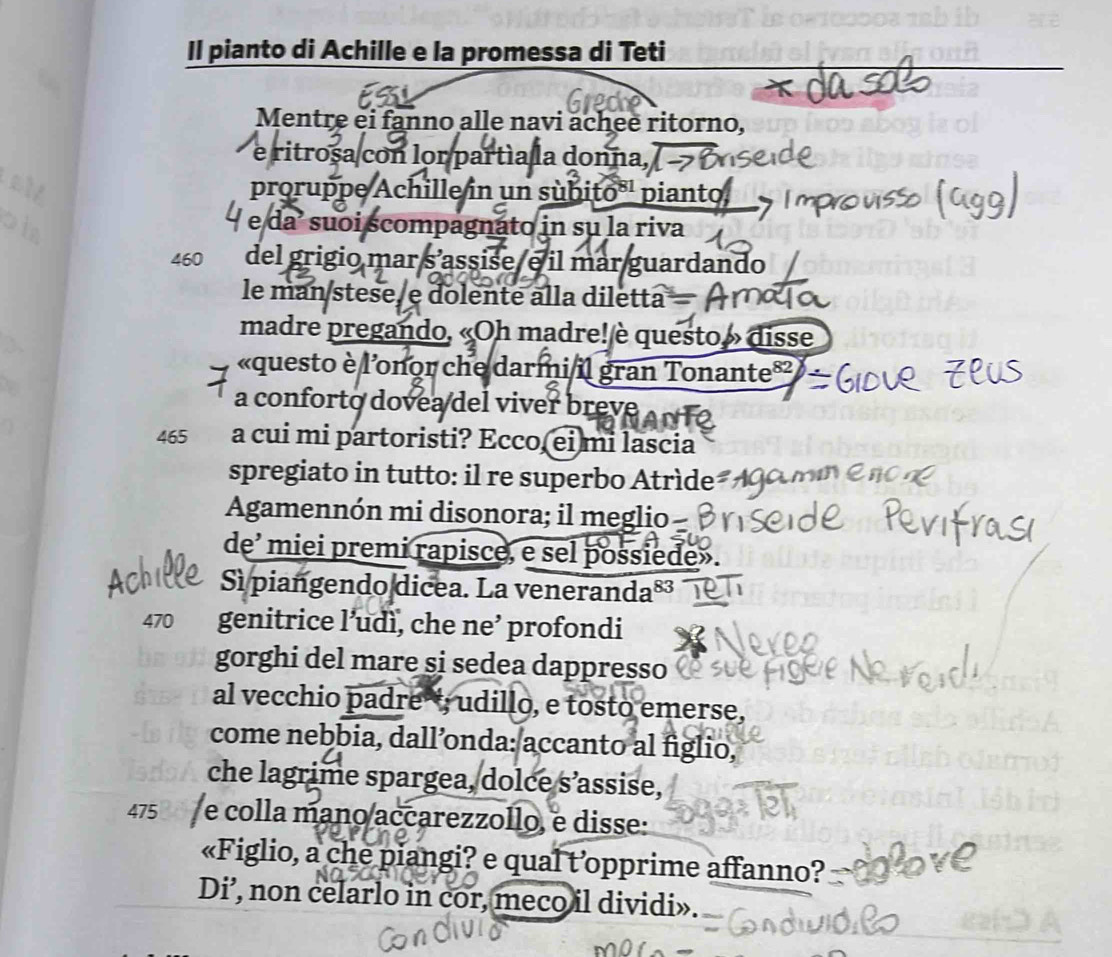 Il pianto di Achille e la promessa di Teti
* da solo
Essi
Greche
Mentre ei fanno alle navi achee ritorno,
e ritrosa con lor partìa la donna, -> Briseide
proruppe Achille in un sùbito⁸¹ pianto, -> Improvisso (agg)
e da' suoi scompagnato in su la riva
460 del grigio mar s'assise, e il mar guardando
le man stese, e dolente alla diletta = Amata
madre pregando, «Oh madre! è questo,» disse
«questo è l'onor che darmi il gran Tonante⁸² = Giove Zeus
a conforto dovea del viver breve
TONANTE
465 a cui mi partoristi? Ecco, ei mi lascia
spregiato in tutto: il re superbo Atrìde = Agamennone
Agamennón mi disonora; il meglio = Briseide Perifrasi
LO FA SUO
de' miei premi rapisce, e sel possiede».
Achille Sì piangendo dicea. La veneranda⁸³ TETI
470 genitrice l'udì, che ne' profondi
* Nereo
gorghi del mare si sedea dappresso
SUBITO
al vecchio padre *; udillo, e tosto emerse,
Achille
come nebbia, dall'onda: accanto al figlio,
che lagrime spargea, dolce s'assise,
475 e colla mano accarezzollo, e disse:
perché?
«Figlio, a che piangi? e qual t'opprime affanno? = dolore
Nasconderlo
Di', non celarlo in cor, meco il dividi». = Condividilo